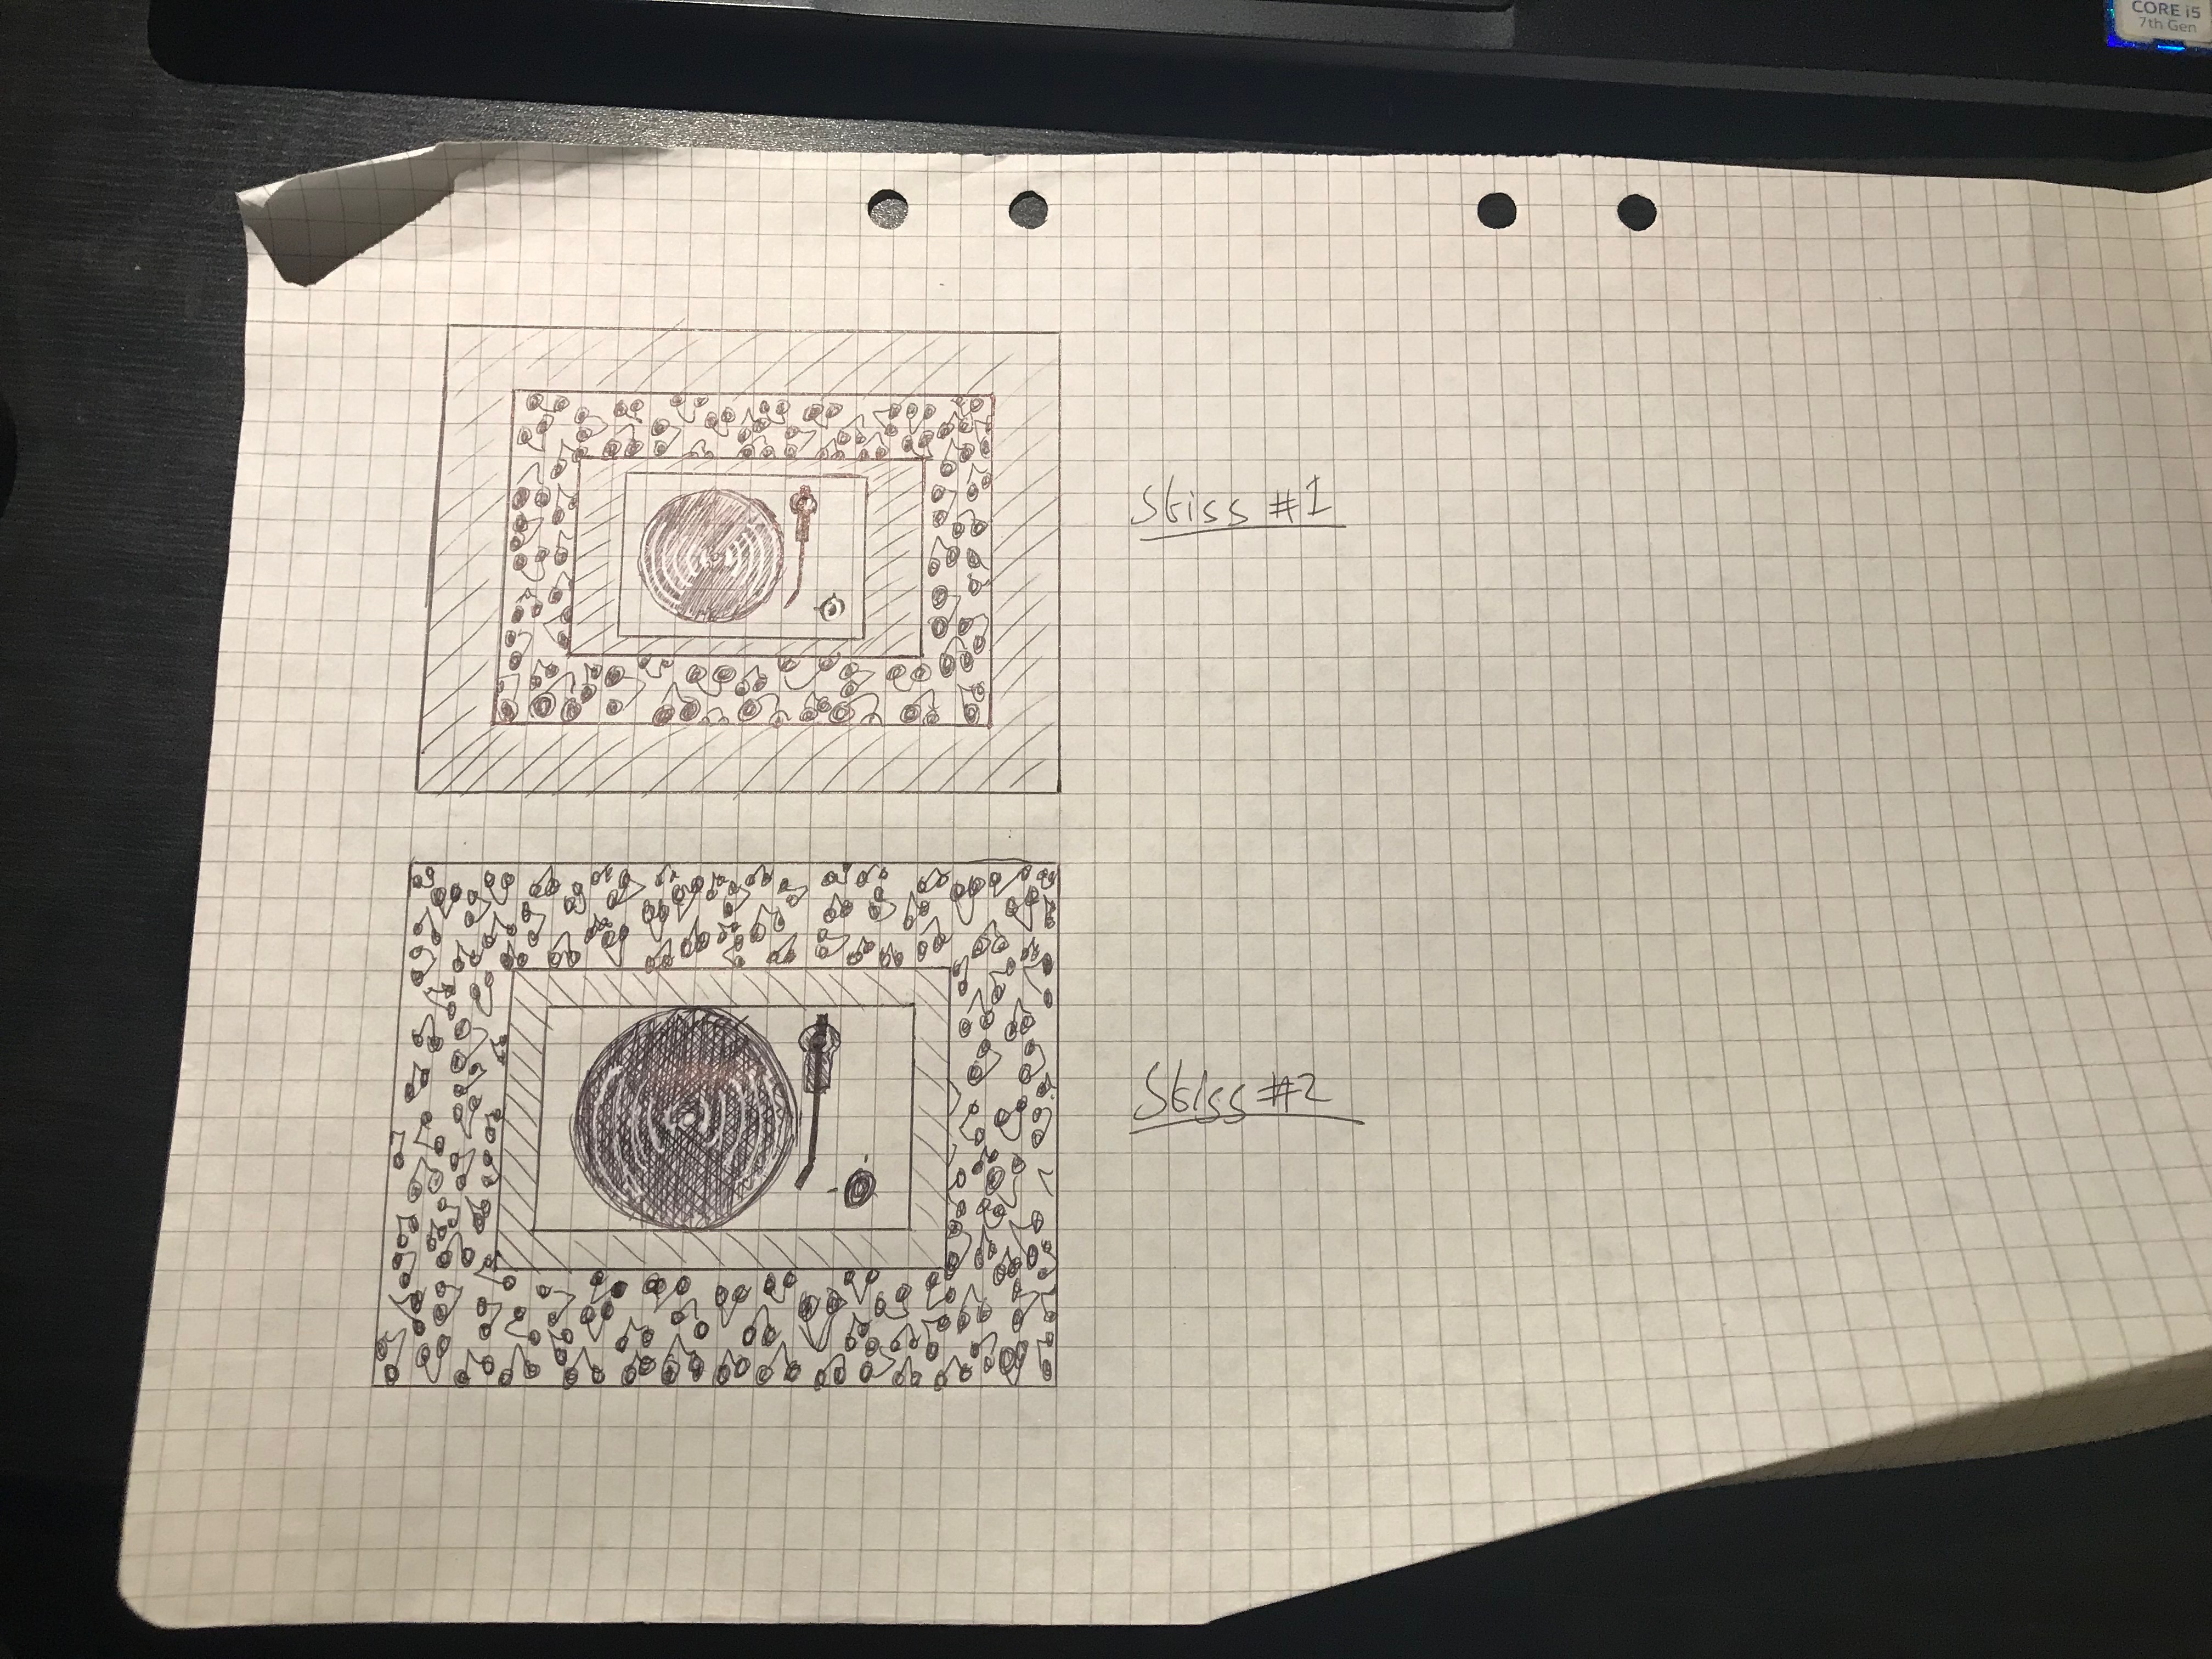 Skiss #1
Skiss #2
CORE i5
7th Gen